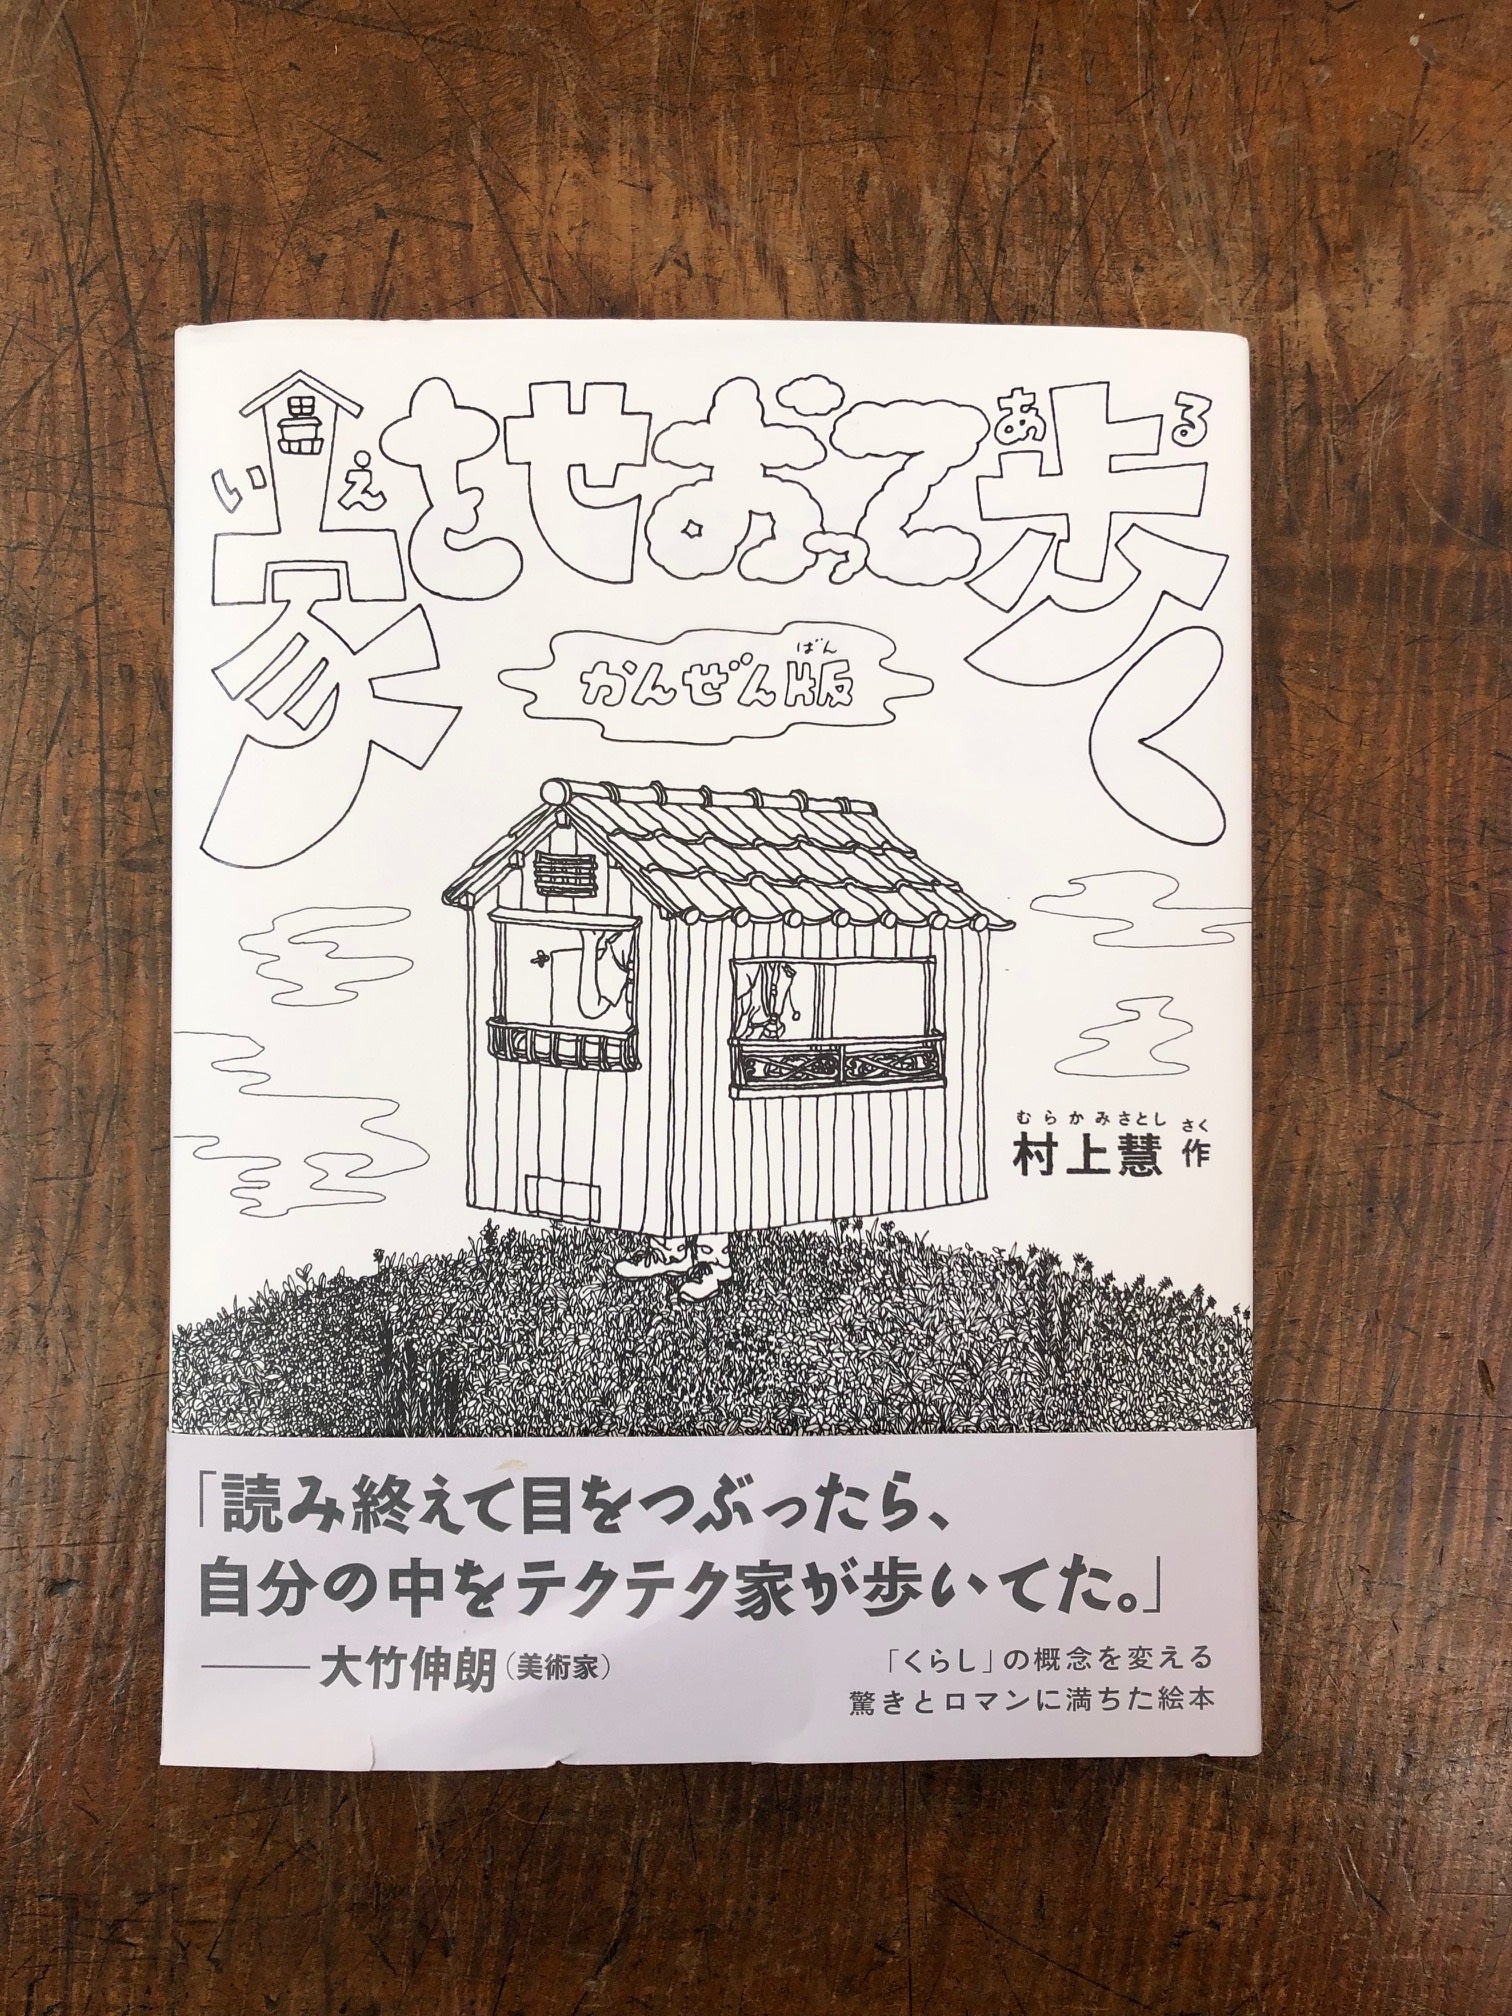 家をせおって歩く
いえ ある
かんぜん版
ばん
むらかみさとし さく
村上慧 作
「読み終えて目をつぶったら、
自分の中をテクテク家が歩いてた。」
――大竹伸朗（美術家）
「くらし」の概念を変える
驚きとロマンに満ちた絵本